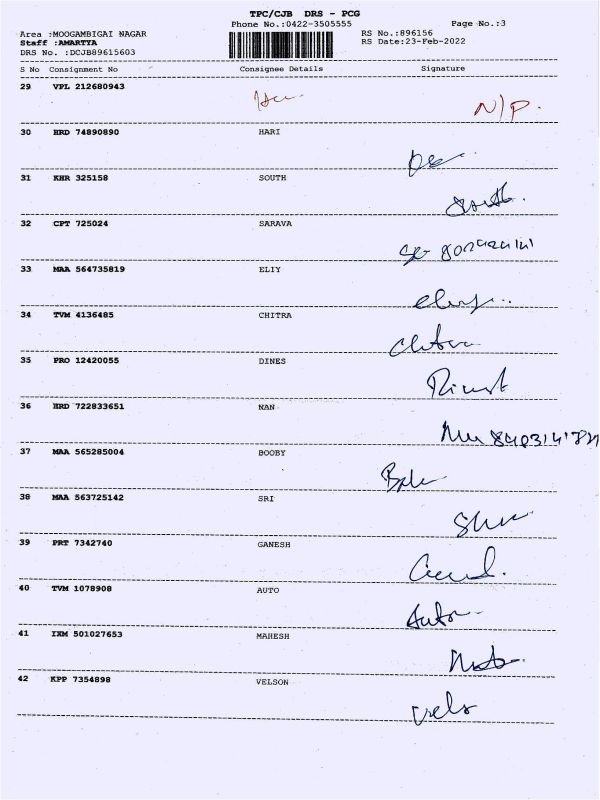 TPC/CJB DRS - PCG
Phone No.:0422-3505555 Page No.:3
Area :MOOGAMBIGAI NAGAR RS No.:896156
Staff :AMARTYA RS Date:23-Feb-2022
DRS No. :DCJB89615603
S No Consignment No Consignee Details Signature
29 VPL 212680943
N/P.
30 HRD 74890890 HARI
31 KHR 325158 SOUTH
32 CPT 725024 SARAVA
33 MAA 564735819 ELIY
34 TVM 4136485 CHITRA
35 PRO 12420055 DINES
36 HRD 722833651 NAN
37 MAA 565285004 BOOBY
38 MAA 563725142 SRI
39 PRT 7342740 GANESH
40 TVM 1078908 AUTO
Auto
41 IXM 501027653 MAHESH
42 KPP 7354898 VELSON
Vels